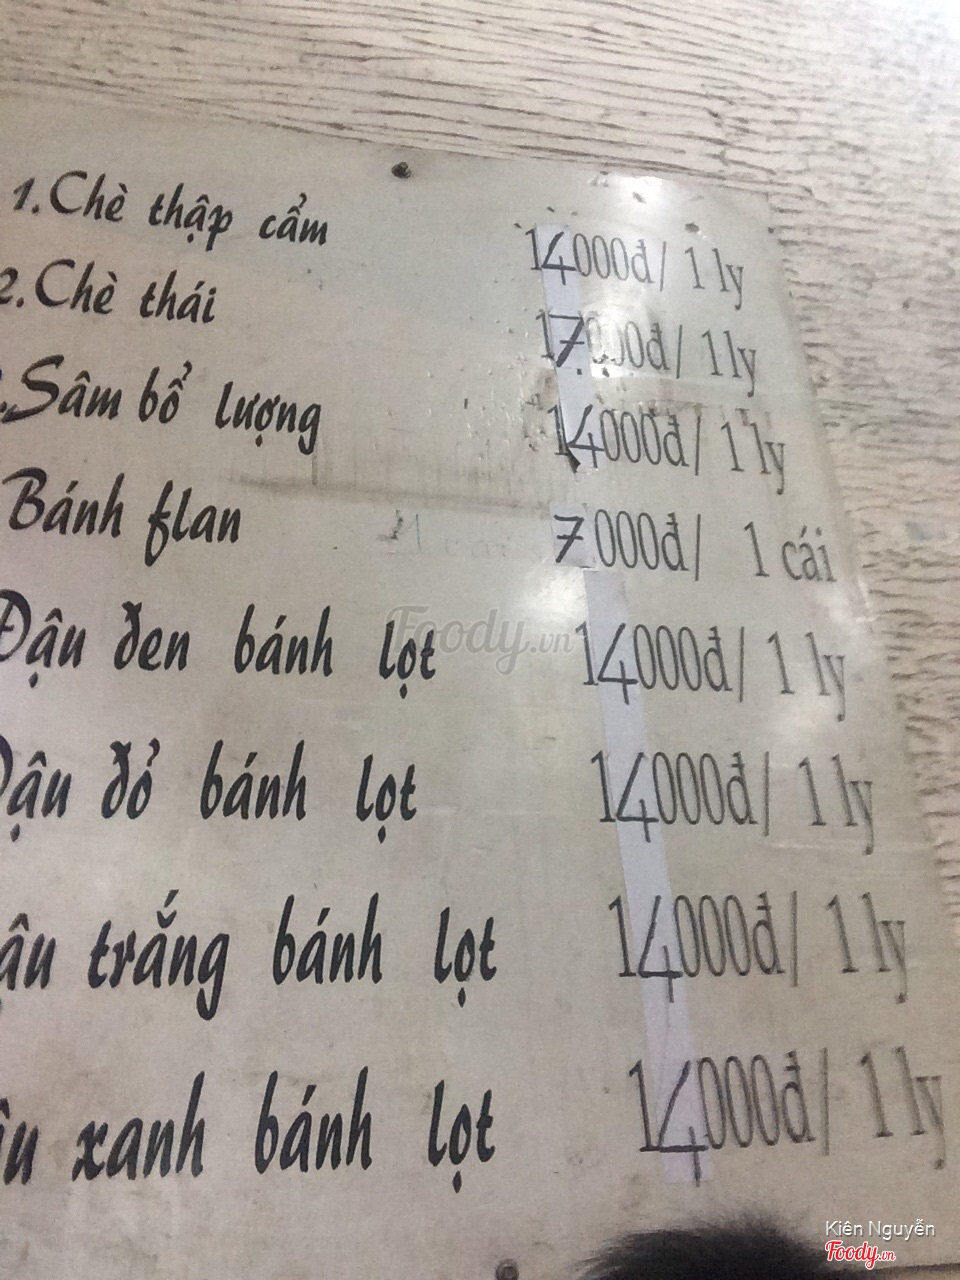 1.Chè thập cẩm 14000đ/ 1 ly
2.Chè thái 17.000đ/ 1 ly
.Sâm bổ lượng 14000đ/ 1 ly
Bánh flan 7.000đ/ 1 cái
Đậu đen bánh lọt 14000đ/ 1 ly
Đậu đỏ bánh lọt 14000đ/ 1 ly
ậu trắng bánh lọt 14000đ/ 1 ly
ậu xanh bánh lọt 14000đ/ 1 ly
Foody.vn
Kiên Nguyễn
Foody.vn